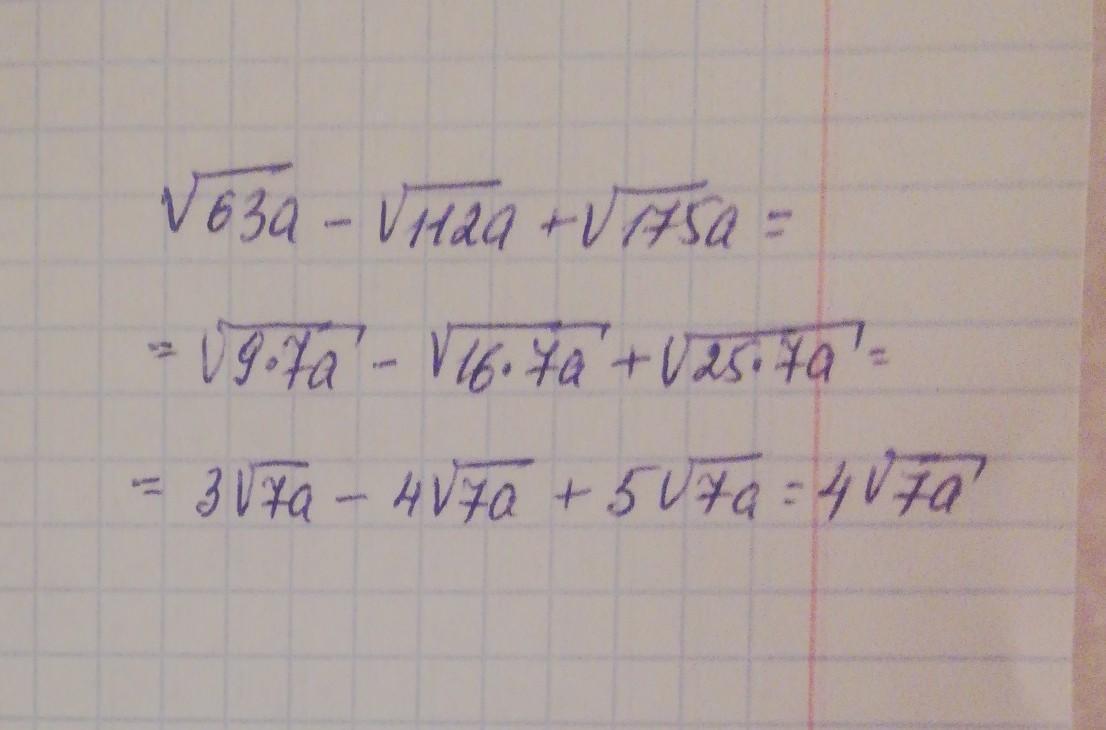 √63a − √112a + √175a =
= √9·7a − √16·7a + √25·7a =
= 3√7a − 4√7a + 5√7a = 4√7a